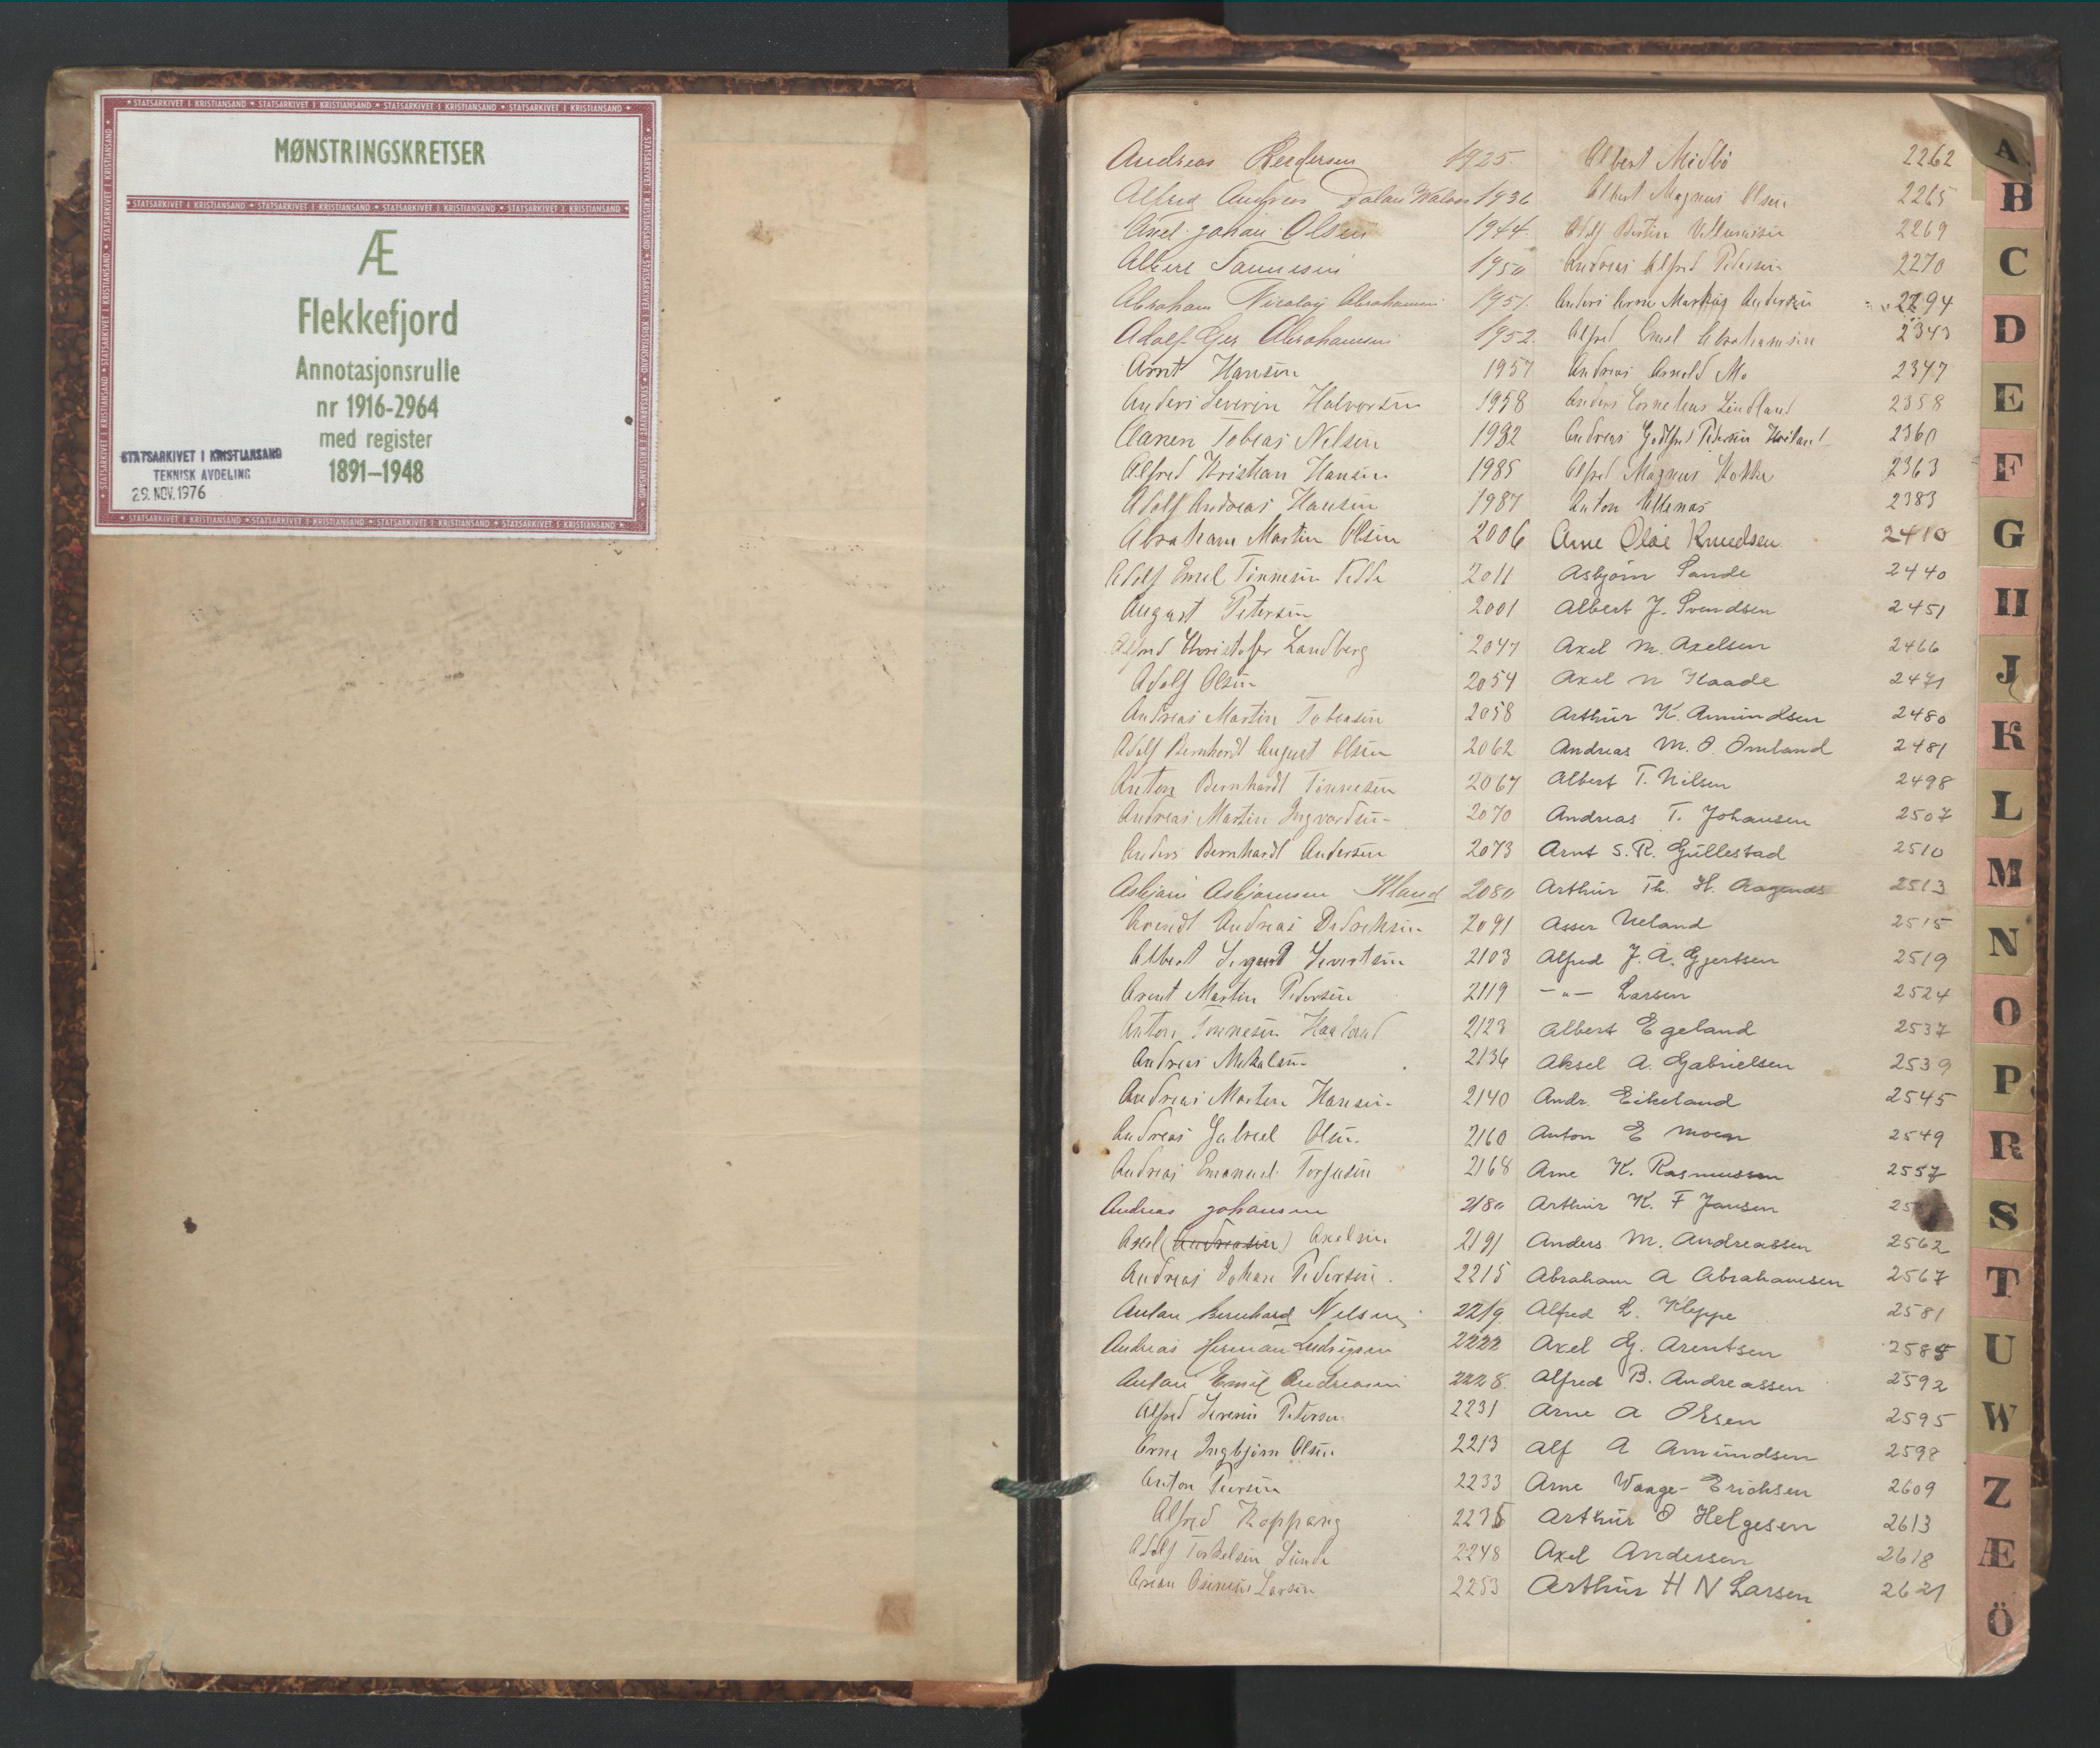 MØNSTRINGSKRETSER
Æ
Flekkefjord
Annotasjonsrulle
nr 1916-2964
med register
1891–1948
STATSARKIVET I KRISTIANSAND
TEKNISK AVDELING
29. NOV. 1976
Andreas Pedersen 1925
Alfred Andreas 1936
Axel Johan Olsen 1944
1950
Abraham Nicolay Abrahamsen 1951
Adolf Abrahamsen 1952
Arnt Hansen 1957
Anders Severin Halvorsen 1958
Aanen Tobias Nelsen 1982
Alfred Kristian Hansen 1985
Adolf Andreas Hansen 1987
Abraham Martin Olsen 2006
Adolf Emil Tønnesen 2011
August Petersen 2001
Alfred Christofer Landberg 2047
Adolf Olsen 2054
Andreas Martin Tobiasen 2058
Adolf Bernhardt August Olsen 2062
Anton Bernhardt Tønnesen 2067
Andreas Martin Ingvardsen 2070
Anders Bernhardt Andersen 2073
Asbjørn Asbjørnsen 2080
Andreas Dedreksen 2091
Albert Sigurd Severtsen 2103
Arent Martin Pedersen 2119
Anton Tønnesen Haaland 2123
Andreas Mikalsen 2136
Andreas Martin Hansen 2140
Andreas Gabriel Olsen 2160
Andreas Emanuel Torjusen 2168
Andreas Johansen 2180
Axel (Andreasen) Axelsen 2191
Andreas Johan Pedersen 2215
Anton Bernhard Nelsen 2219
Andreas Herman Ludvigsen 2222
Anton Emil Andreasen 2228
Alfred Severin Petersen 2231
Arne Ingbjørn Olsen 2213
Anton Iversen 2233
Alfred Koppang 2235
Adolf Torkelsen Sunde 2248
Larsen 2253
Albert Midbö 2262
Albert Magnus Olsen 2265
Adolf 2269
Andreas Alfred Pedersen 2270
Anders Arne Markus Andersen 2294
Alfred Emil Abrahamsen 2343
Andreas Arnold Mo 2347
Anders Cornelius Lindland 2358
Andreas Godtfred Pedersen 2360
Alfred Magnus 2363
Anton 2383
Arne Olai Knudsen 2410
Asbjørn Sande 2440
Albert J. Svendsen 2451
Axel M. Axelsen 2466
Axel N Haade 2471
Arthur K. Amundsen 2480
Andreas M. O. Omland 2481
Albert T. Nilsen 2498
Andreas T. Johansen 2507
Arnt S. R. Gullestad 2510
Arthur Th. H. 2513
Asser Ueland 2515
Alfred J. A. Gjertsen 2519
— " — Larsen 2524
Albert Egeland 2537
Aksel A. Gabrielsen 2539
Andr. Eikeland 2545
Anton E Moen 2549
Arne K. Rasmussen 2557
Arthur K. F Jansen 25
Anders M. Andreassen 2562
Abraham A Abrahamsen 2567
Alfred L. Kleppe 2581
Axel G. Arentsen 2585
Alfred B. Andreassen 2592
Arne A Olsen 2595
Alf A Amundsen 2598
Arne Waage-Erichsen 2609
Arthur O Helgesen 2613
Axel Andersen 2618
Arthur H N Larsen 2621
A
B
C
D
E
F
G
H
J
K
L
M
N
O
P
R
S
T
U
W
Z
Æ
Ö